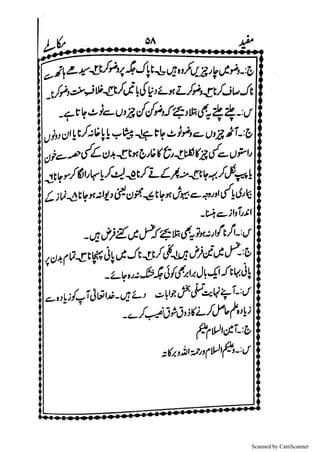 مفید ۵۸ مکالمے
ج:۔ وضو میں چار چیزیں مکروہ ہیں ۱۔ ناپاک جگہ پر وضو کرنا ۲۔ سیدھے ہاتھ سے
ناک صاف کرنا ۳۔ وضو کرتے ہوئے دنیا کی باتیں کرنا ۴۔ خلاف سنت وضو کرنا۔
س:۔ چلتے چلتے یہ بھی بتلا دیجئے کہ وضو کن کن چیزوں سے ٹوٹ جاتا ہے۔
ج:۔ آٹھ چیزوں سے وضو ٹوٹ جاتا ہے ۱۔ پیشاب یا پاخانہ کرنا یا ان دونوں
راستوں سے کسی چیز کا نکلنا ۲۔ ریح کا خارج ہونا ۳۔ بدن کے کسی حصہ سے خون
یا پیپ نکل کر بہہ جانا ۴۔ منہ بھر کے قے کرنا ۵۔ لیٹ کر یا سہارا لگا کر سو جانا ۶۔
بیماری یا کسی اور وجہ سے بیہوش ہو جانا ۷۔ مجنون یعنی دیوانہ ہو جانا ۸۔ نماز کے
اندر آواز سے ہنسنا۔
س:۔ اگر ناگوار نہ ہو تو یہ بھی بتلا دیجئے کہ غسل میں کتنے فرض ہیں۔
ج:۔ غسل میں تین فرض ہیں ۱۔ کلی کرنا ۲۔ ناک میں پانی پہنچانا ۳۔ تمام بدن پر
پانی بہانا کہ ایک بال برابر بھی کوئی جگہ خشک نہ رہ جائے۔
س:۔ آپ نے نہایت تسلی بخش جوابات دئے ہیں۔ خدا تعالیٰ آپ کو زیادہ سے
زیادہ علم حاصل کرنے کا ذوق شوق نصیب کرے۔
ج:۔ آمین السلام علیکم
س:۔ وعلیکم السلام ورحمۃ اللہ وبرکاتہ
Scanned by CamScanner